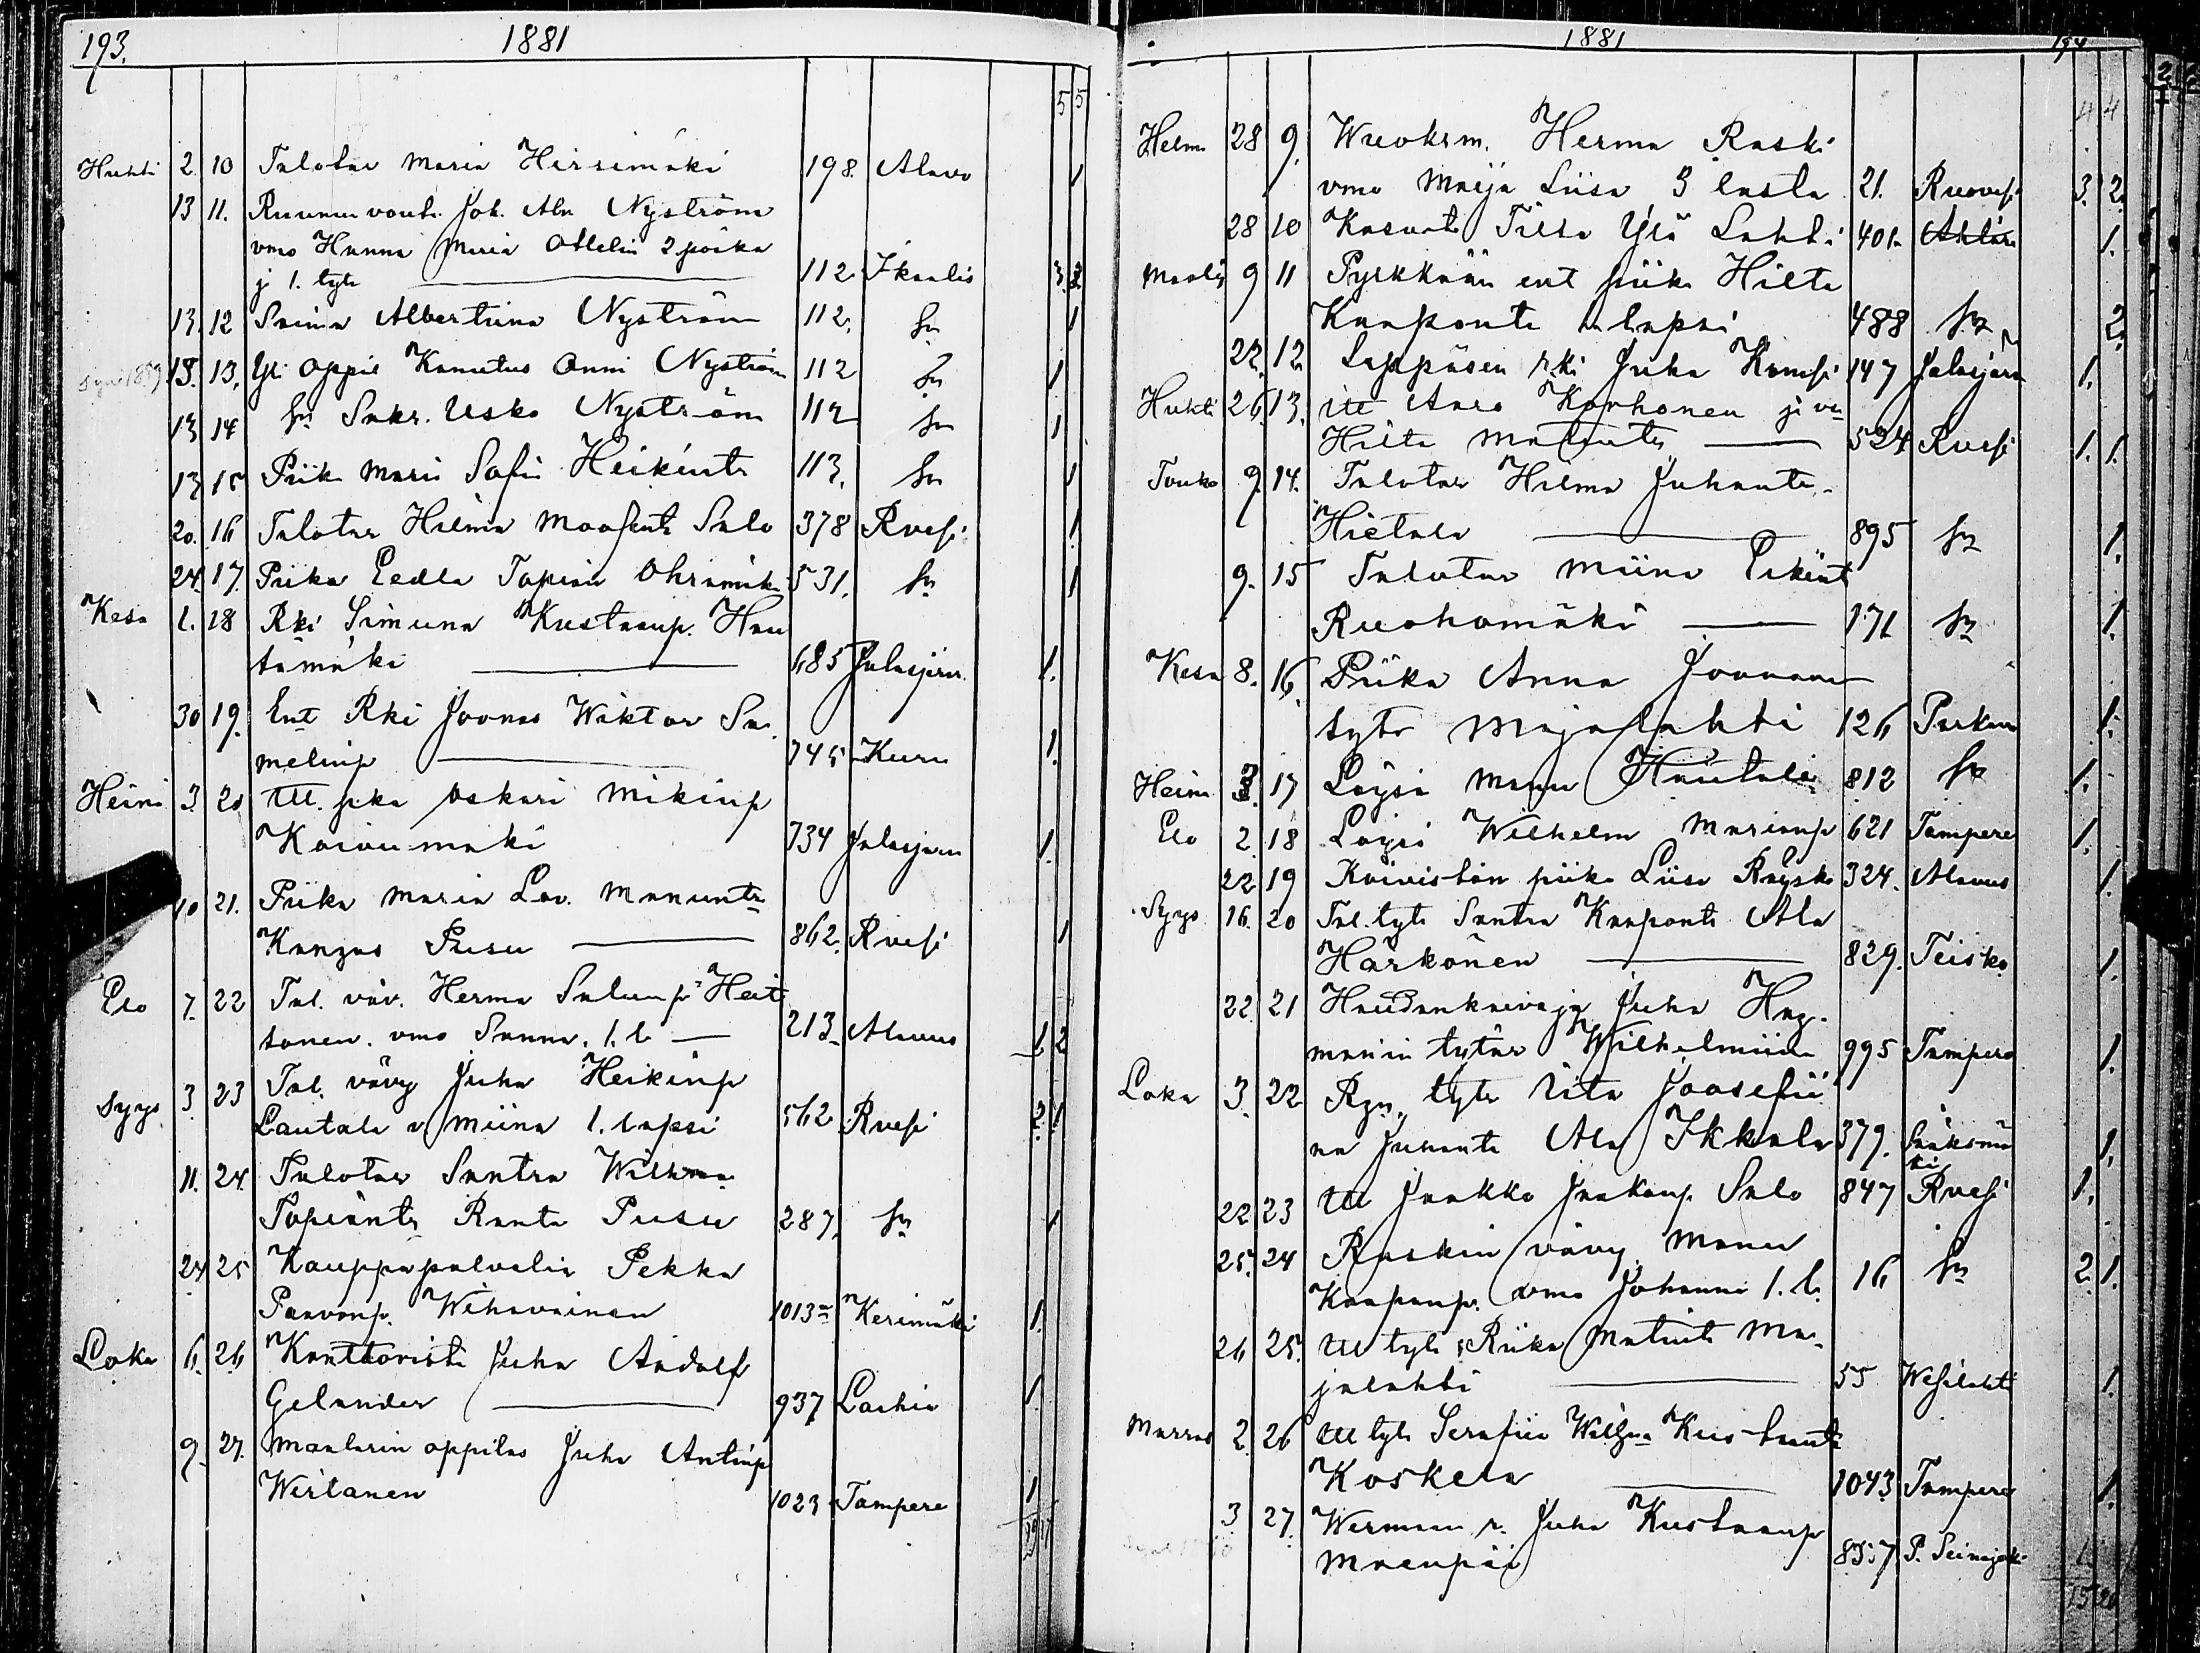 193.
1881
5 5
Huhti 2. 10 Talotar Maria Hirsimäki 198. Alavo 1
13 11. Ruununvouti Joh. Abr. Nyström
vmo Hanna Maria 2 poika
j 1. tytr 112 Ikaalis 3. 3
13. 12 Saima Albertiina Nyström 112, sm 1
13. 13, Yl. oppil Kanutus Onni Nyström 112 sm 1
13 14 sm Sakr. Usko Nyström 112 sm 1
13 15 Piik Maria Sofia Heikint. 113, sm 1
20. 16 Talotar Hilma Salo 378 Rvesi 1
24. 17. Piika Eedla Topiaa 531. sm 1
Kesä 1. 18 Rki Simuna Kustaanp. Hau
tamäki 685 Jalasjärvi 1.
30 19. Ent Rki Joonas Wiktor Sa
melinp 745 Kuru 1.
Heinä 3 20 Itll. pka Oskari Mikinp
Koivumäki 734 Jalasjärvi 1.
10 21. Piika Maria Lov. Manunt.
Kangas Pusu 862. Rvesi 1
Elo 7. 22 Tal. väv. Herma Salunp Heit
tonen. vmo Sanna. 1. l 213 Alavus 1 2
Syys 3. 23 Tal. vävy Juha Heikinp
Lautala v Miina 1. lapsi 562 Rvesi 2. 1
11. 24. Talotar Santra Wilhma
Topiant. Ranta Pusu 287, sm 1
24 25 Kauppapalvelia Pekka
Paavonp. Wihavainen 1013 Kerimäki 1.
Loka 6. 26 Konttoristi Juha Aadolf
Gelander 937 Laihia 1.
9. 27. Maalarin oppilas Juha Antinp
Wirtanen 1023 Tampere 1
19 17
1881
194
4 4
Helm 28 9. Wuokrm. Herma Raski
vmo Maija Liisa 3 lasta 21. Ruovesi 3. 2.
28 10 Kasvati Tilda Ylä Lahti 401. Ähtäri 1.
Maalis 9 11 Pyrkkään ent piika Hilta
Kaaponti lapsi 488 sm 2.
22. 12 Lappäsen rki Juha Kamsi 147 Jalasjärvi 1.
Huhti 26. 13. Itll Aaro Korhonen ja va
Hilta Matint. 524 Rvesi 1. 1.
Touko 9. 14. Talotar Hilma Juhanti
Hietala 895 sm 1.
9. 15 Talotar Miina Erkint
Ruohomäki 171 sm 1.
Kesä 8. 16. Piika Anna Joonaan
tytr Majalahti 126 Parkano 1.
Heinä 3. 17 Löysi Manu Hautala 812 sm 1.
Elo 2. 18 Löysi Wilhelm Marianp 621 Tampere 1.
22 19 Koiviston piika Liisa Räyskö 324. Alavus 1.
Syys 16. 20 Tal. tytr Santra Kaaponti Ala
Härkönen 829. Teisko 1.
22. 21 Haudankaivaja Juha Hag.
manin tytär Wilhelmiina 995 Tampere 1.
Loka 3. 22 Rgn. tytr Iita Joosefii
na Juhanti Ala Ikkala 379. Sääksmä
ki 1.
22 23 Itll Jaakko Jaakonp Salo 847 Rvesi 1.
25. 24 Raskin vävy Manu
Kaaponp. vmo Johanna 1. l. 16 sm 2. 1.
26 25. Itll tytr Riika Matint. Ma
jalahti 55 Wesilahti 1.
Marras 2. 26 Itll tytr Serafiia Wilhma Kustaant.
Koskela 1043 Tampere 1.
3. 27. Wermaan r. Juha Kustaanp
Maanpää 857 P. Seinäjoki 1.
15 20